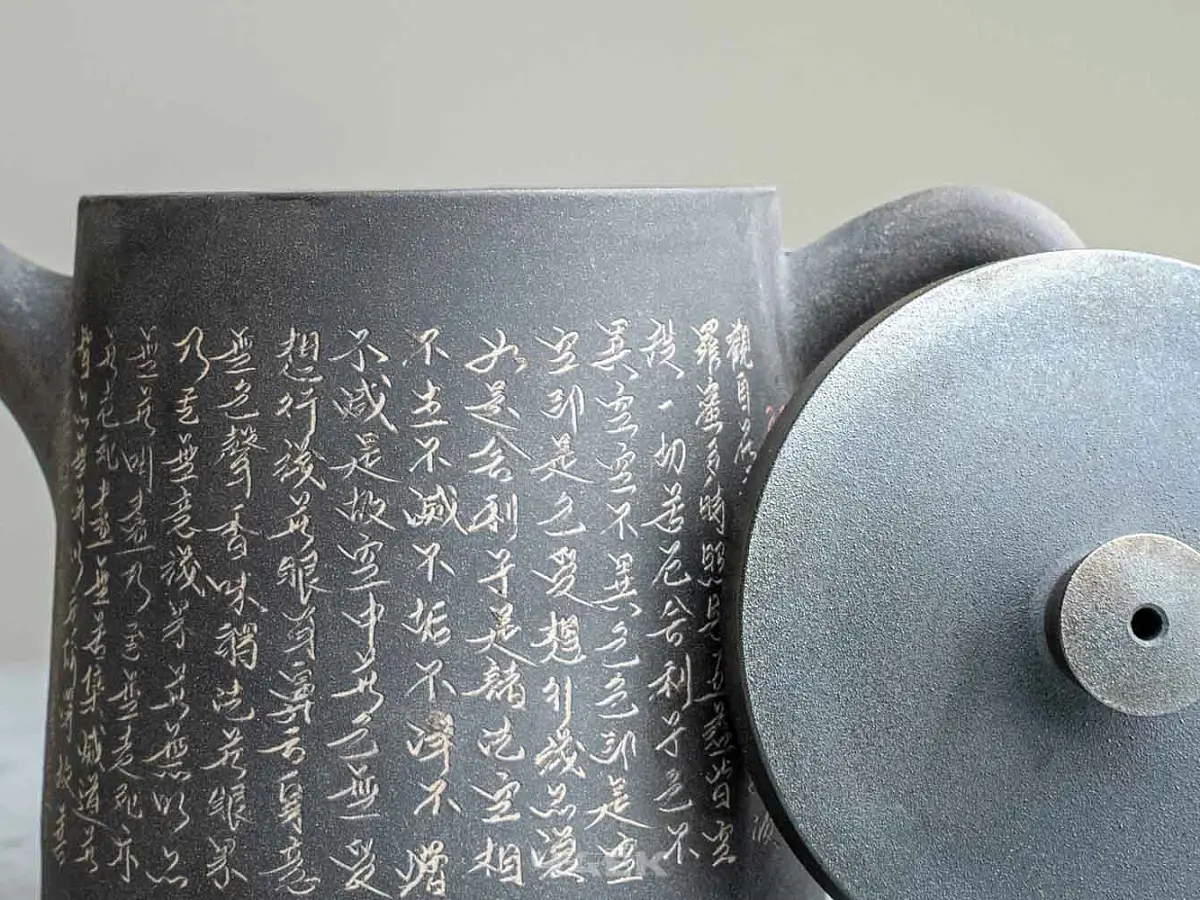 觀自在
羅蜜多時照見五蘊皆空
度一切苦厄舍利子色不
異空空不異色色即是空
空即是色受想行識亦復
如是舍利子是諸法空相
不生不滅不垢不淨不增
不減是故空中無色無受
想行識無眼耳鼻舌身意
無色聲香味觸法無眼界
乃至無意識界無無明亦
無無明盡乃至無老死亦
無老死盡無苦集滅道無
智亦無得以無所得故菩